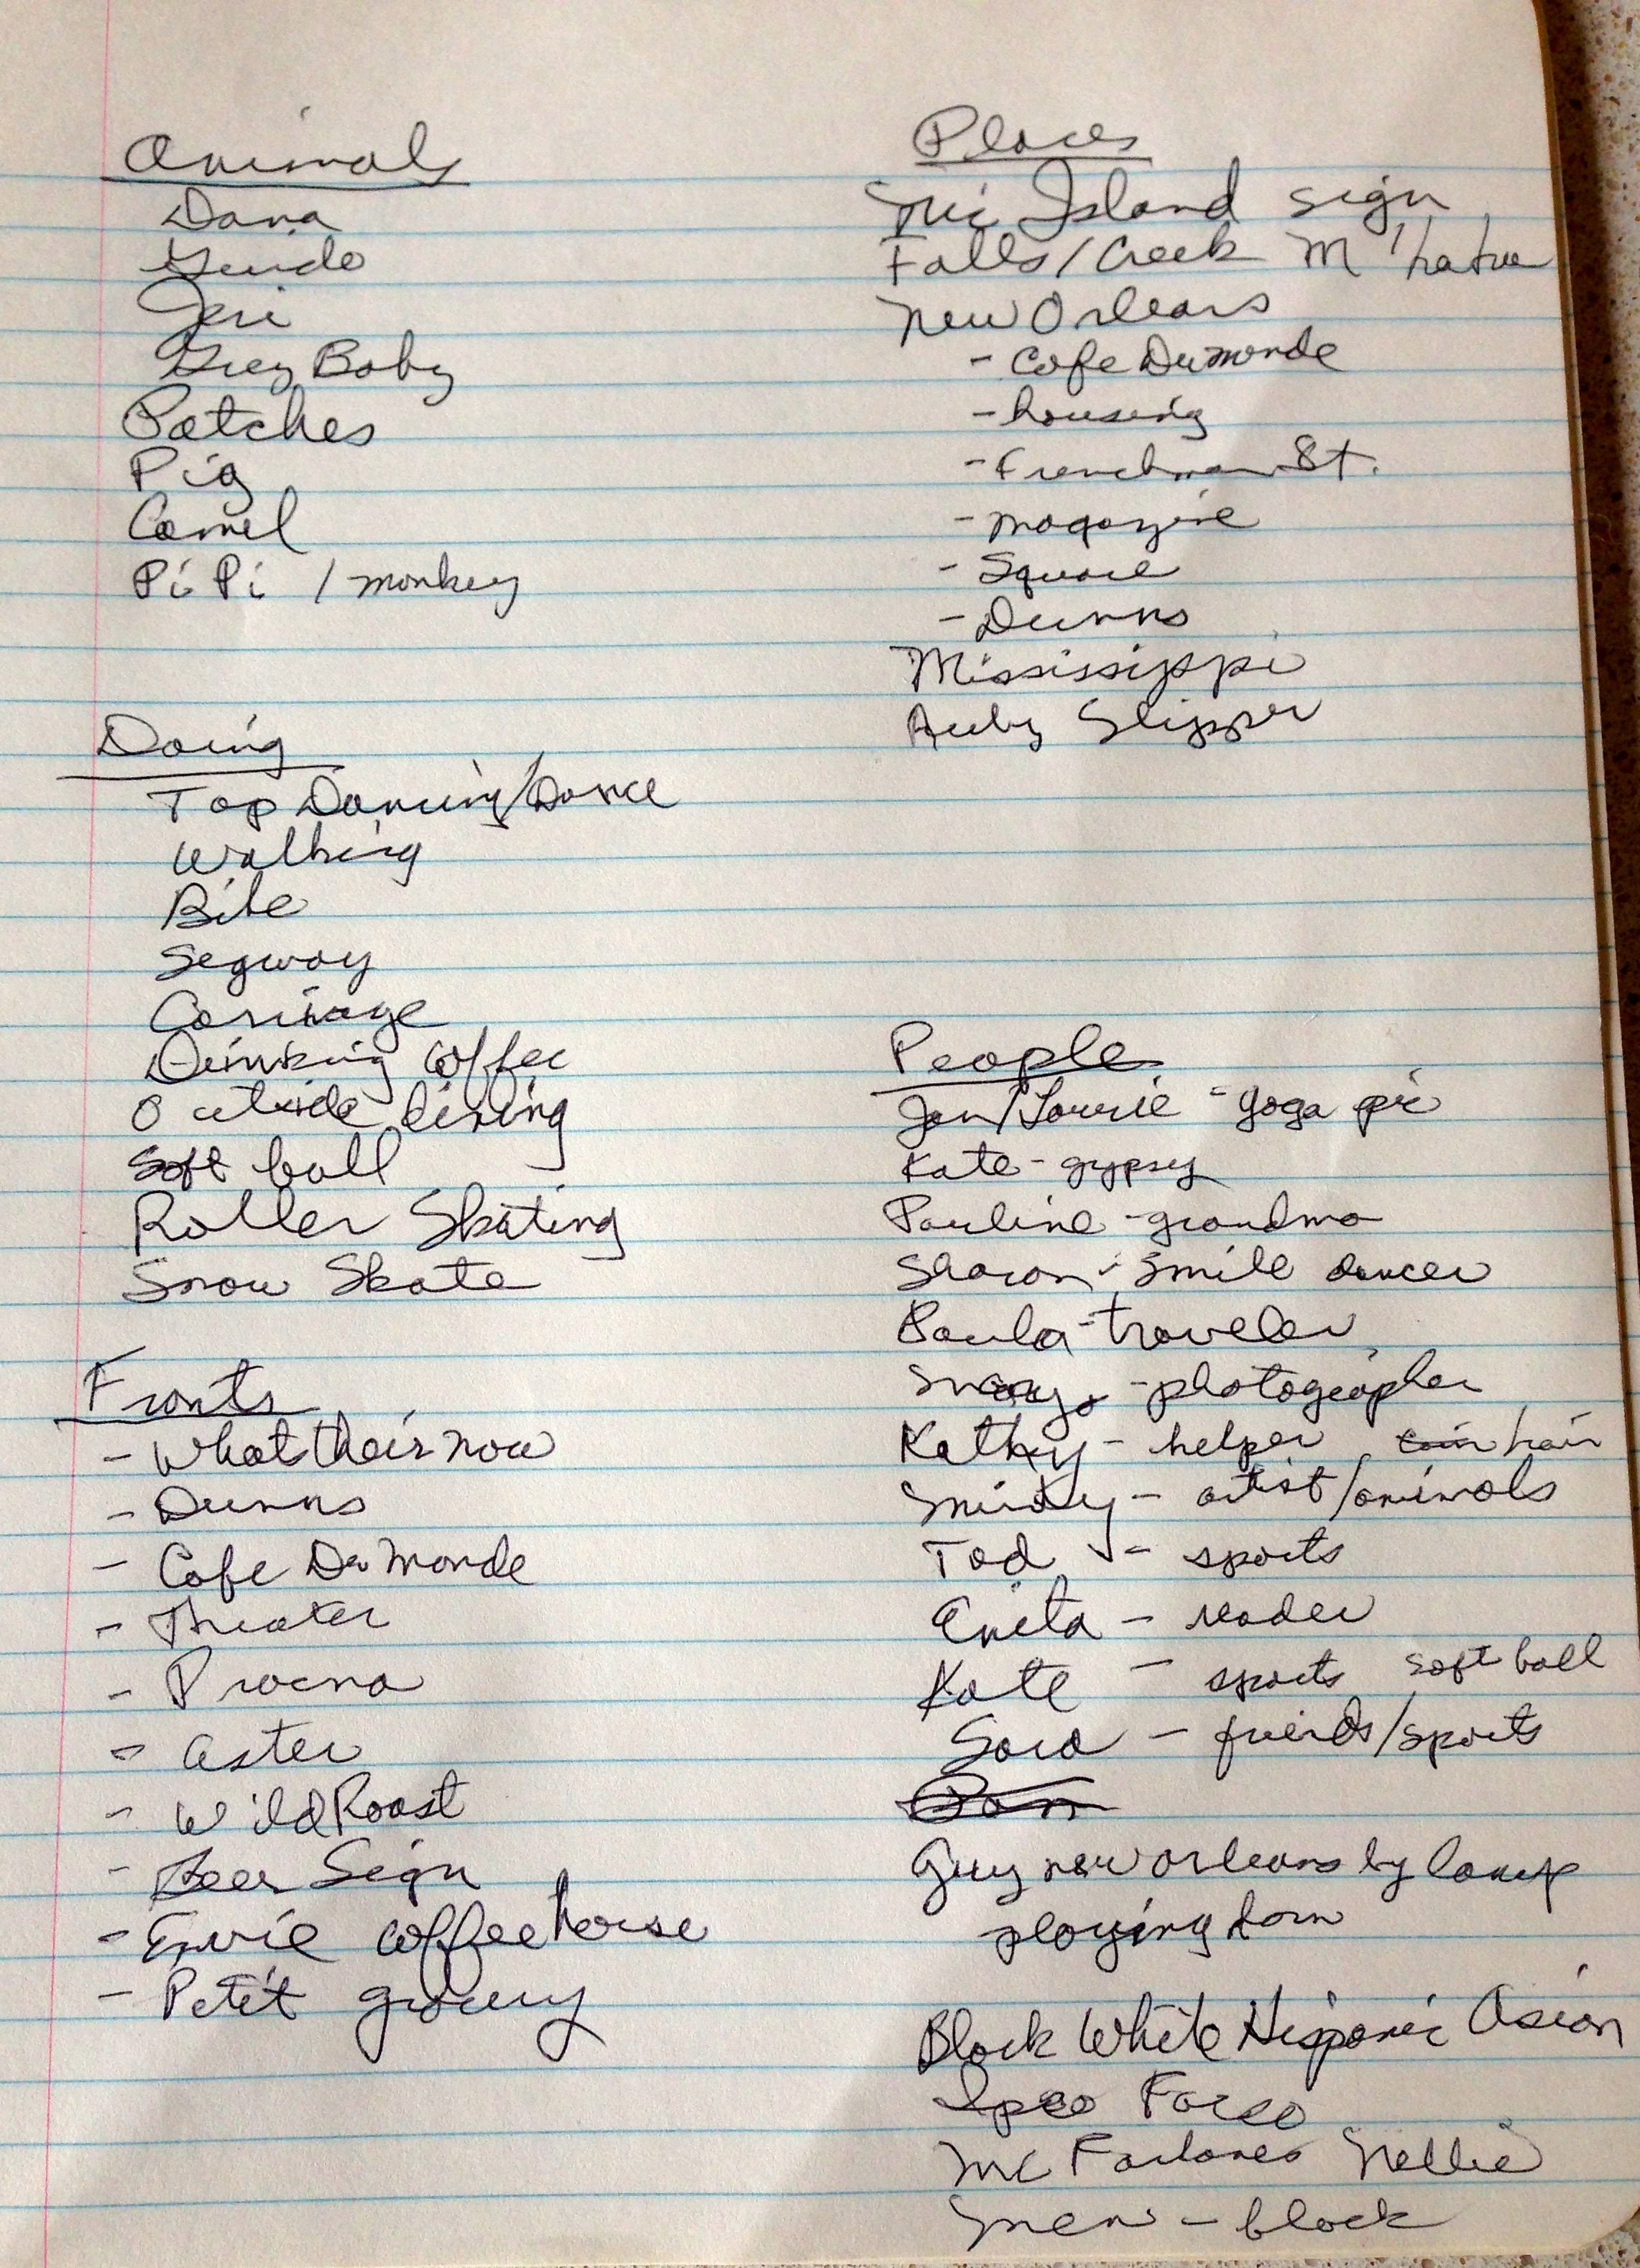 Animals
Dana
Guido
Jeri
Grey Baby
Patches
Pig
Camel
PiPi / monkey
Doing
Tap Dancing/Dance
Walking
Bike
Segway
Carriage
Drinking Coffee
Outside dining
Soft ball
Roller Skating
Snow Skate
Fronts
- What their now
- Dunns
- Cafe Du Monde
- Theater
- Aster
- Wild Roast
- Beer Sign
- Envie coffee house
- Petit grocery
Places
Island sign
Falls/Creek M'haha
New Orleans
- Cafe Du monde
- housing
- Frenchman St.
- magazine
- Square
- Dunns
Mississippi
Ruby Slipper
People
Jan/Laurie - yoga pic
Kate - gypsy
Pauline - grandma
Sharon - Smile dancer
Paula - traveler
Mary - photographer
Kathy - helper hair
Mindy - artist/animals
Tod - sports
Enita - reader
Kate - sports soft ball
Sara - friends/sports
Guy new orleans by lamp
playing horn
Black White Hispanic Asian
Faces
McFarlanes Nellie
men - black